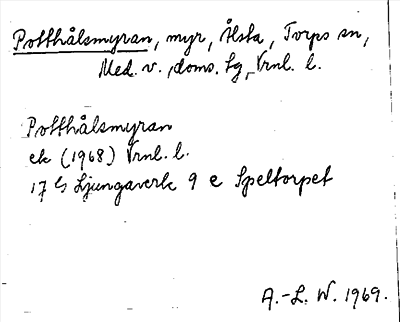 Potthålsmyran, myr, Ålsta, Torps sn,
Med. v., doms. tg, Vrnl. l.
Potthålsmyran
ek (1968) Vrnl. l.
17 G Ljungaverk 9 e Speltorpet
A.-L. W. 1969.